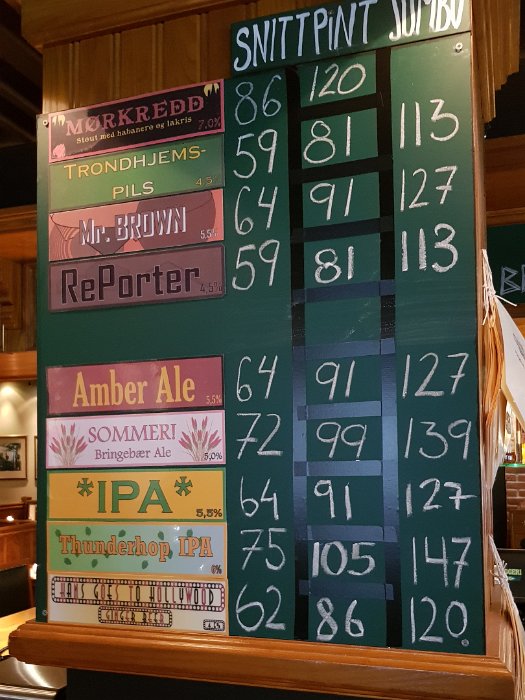 SNITT PINT JUMBO
MØRKREDD 86 120
Stout med habanero og lakris 7.0%
TRONDHJEMS- 59 81 113
PILS 4,5%
Mr. BROWN 64 91 127
5,5%
RePorter 59 81 113
4,5%
Amber Ale 64 91 127
5,5%
SOMMER! 72 99 139
Bringebær Ale 5,0%
*IPA* 64 91 127
5,5%
Thunderhop IPA 75 105 147
6%
HOPS GOES TO HOLLYWOOD 62 86 120
GINGER BEER